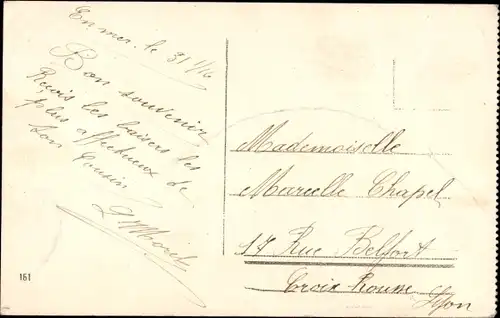 En mer, le 31/1/16
Bon souvenir
Reçois les baisers les
plus affectueux de
ton Cousin
Mademoiselle
Marcelle Chapel
17 Rue Belfort
Croix-Rousse Lyon
161